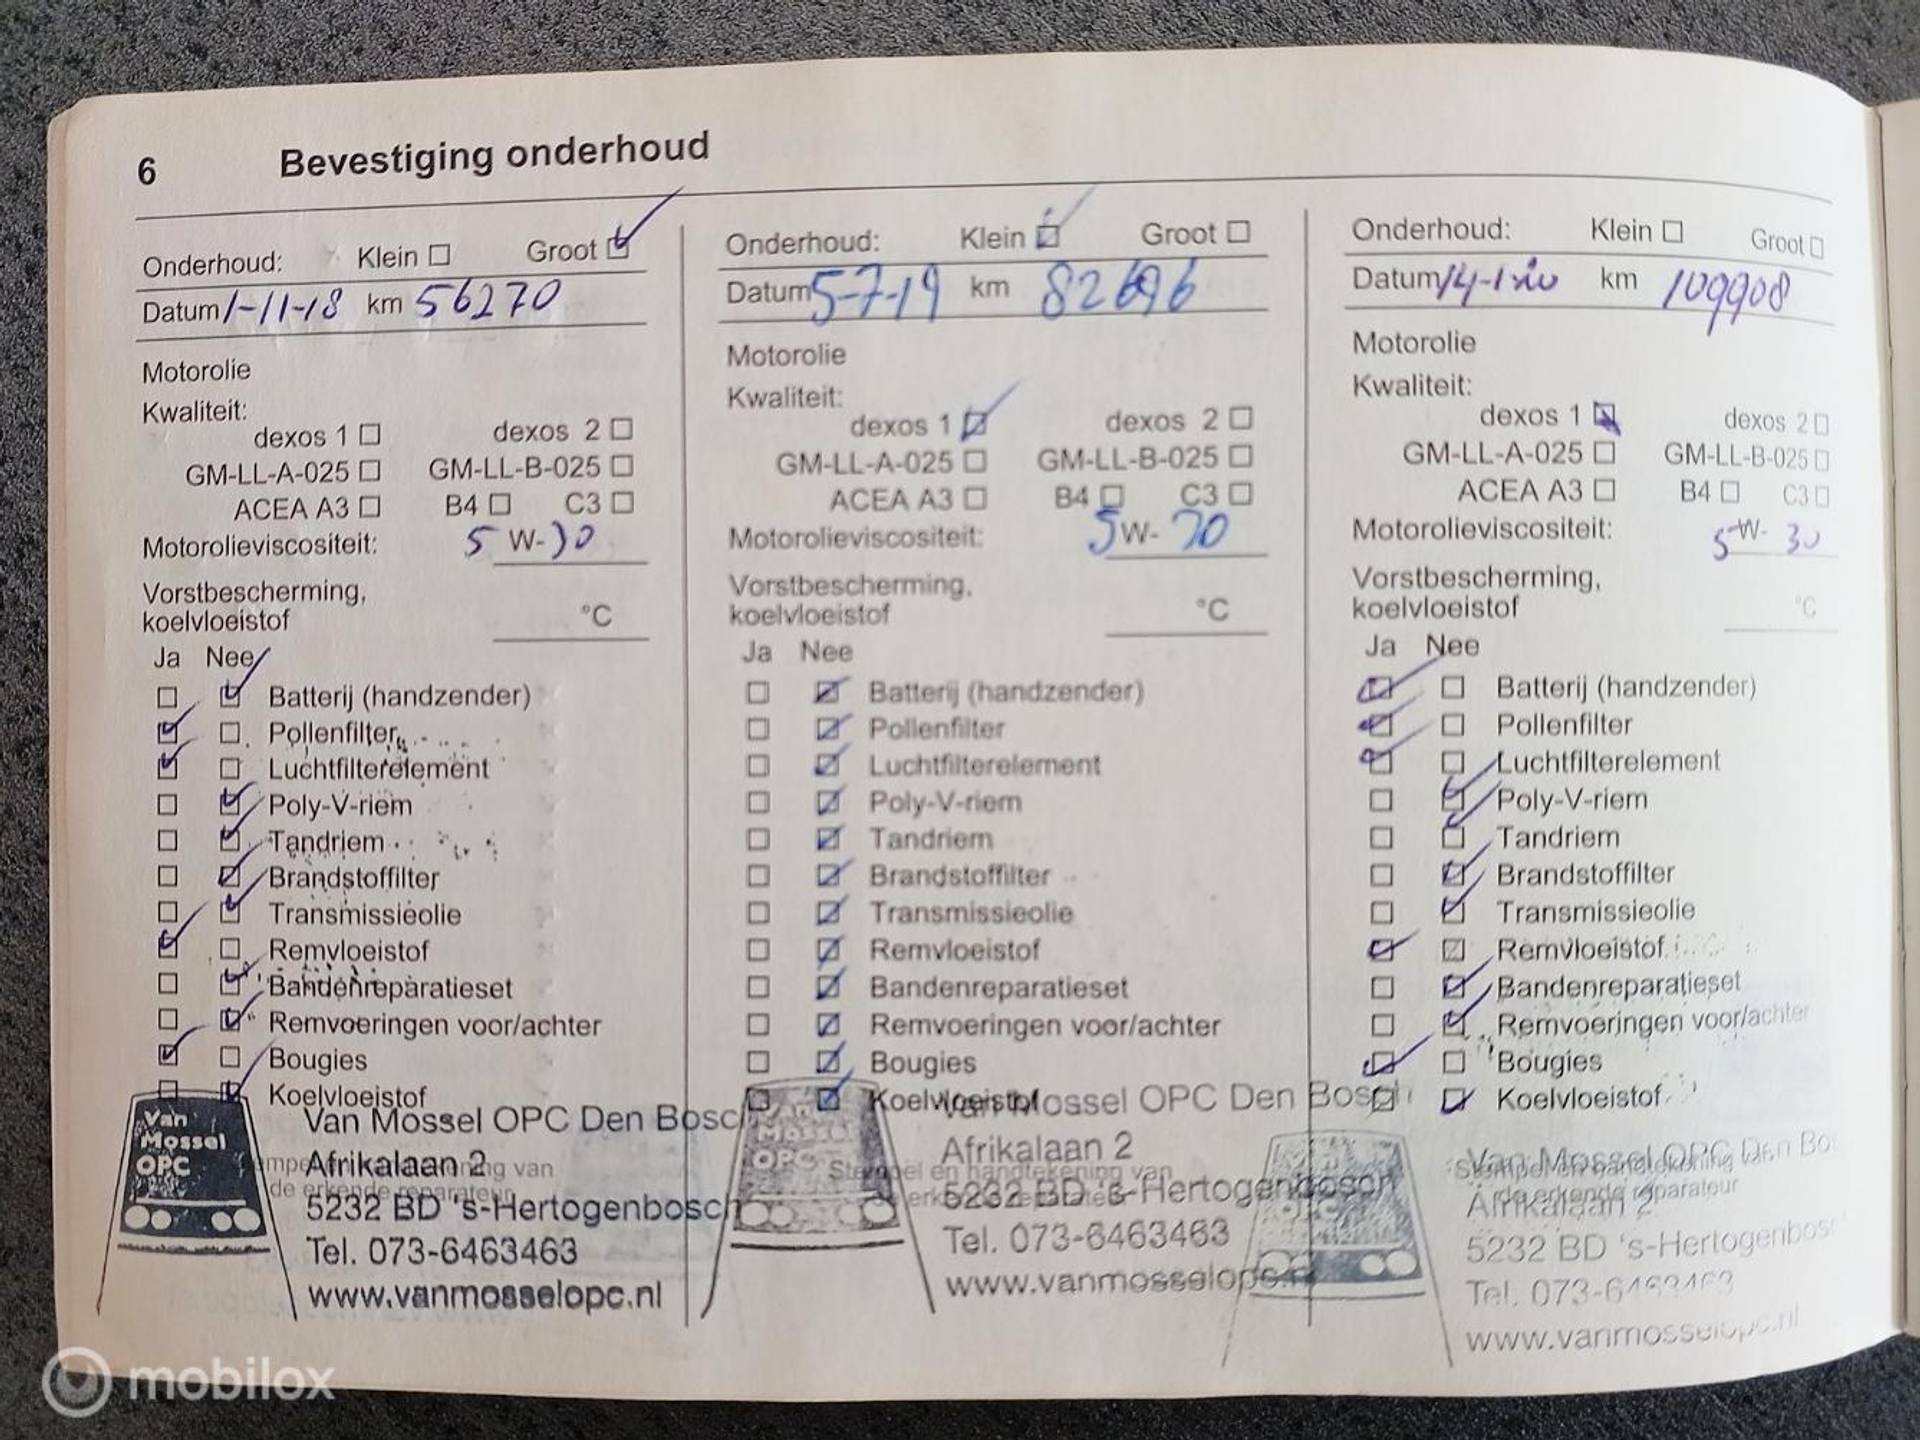 6 Bevestiging onderhoud
Onderhoud: Klein Groot
Datum 1-11-18 km 56270
Motorolie
Kwaliteit:
dexos 1 dexos 2
GM-LL-A-025 GM-LL-B-025
ACEA A3 B4 C3
Motorolieviscositeit: 5 W-30
Vorstbescherming,
koelvloeistof °C
Ja Nee
Batterij (handzender)
Pollenfilter
Luchtfilterelement
Poly-V-riem
Tandriem
Brandstoffilter
Transmissieolie
Remvloeistof
Bandenreparatieset
Remvoeringen voor/achter
Bougies
Koelvloeistof
Stempel en handtekening van
de erkende reparateur
Van Mossel OPC
Van Mossel OPC Den Bosch
Afrikalaan 2
5232 BD 's-Hertogenbosch
Tel. 073-6463463
www.vanmosselopc.nl
Onderhoud: Klein Groot
Datum 5-7-19 km 82696
Motorolie
Kwaliteit:
dexos 1 dexos 2
GM-LL-A-025 GM-LL-B-025
ACEA A3 B4 C3
Motorolieviscositeit: 5 W- 30
Vorstbescherming,
koelvloeistof °C
Ja Nee
Batterij (handzender)
Pollenfilter
Luchtfilterelement
Poly-V-riem
Tandriem
Brandstoffilter
Transmissieolie
Remvloeistof
Bandenreparatieset
Remvoeringen voor/achter
Bougies
Koelvloeistof
Stempel en handtekening van
de erkende reparateur
Van Mossel OPC
Van Mossel OPC Den Bosch
Afrikalaan 2
5232 BD 's-Hertogenbosch
Tel. 073-6463463
www.vanmosselopc.nl
Onderhoud: Klein Groot
Datum km 109908
Motorolie
Kwaliteit:
dexos 1 dexos 2
GM-LL-A-025 GM-LL-B-025
ACEA A3 B4 C3
Motorolieviscositeit: 5 W- 30
Vorstbescherming,
koelvloeistof °C
Ja Nee
Batterij (handzender)
Pollenfilter
Luchtfilterelement
Poly-V-riem
Tandriem
Brandstoffilter
Transmissieolie
Remvloeistof
Bandenreparatieset
Remvoeringen voor/achter
Bougies
Koelvloeistof
Stempel en handtekening van
de erkende reparateur
Van Mossel OPC Den Bo
Afrikalaan 2
5232 BD 's-Hertogenbos
Tel. 073-6463463
www.vanmosselopc.nl
mobilox